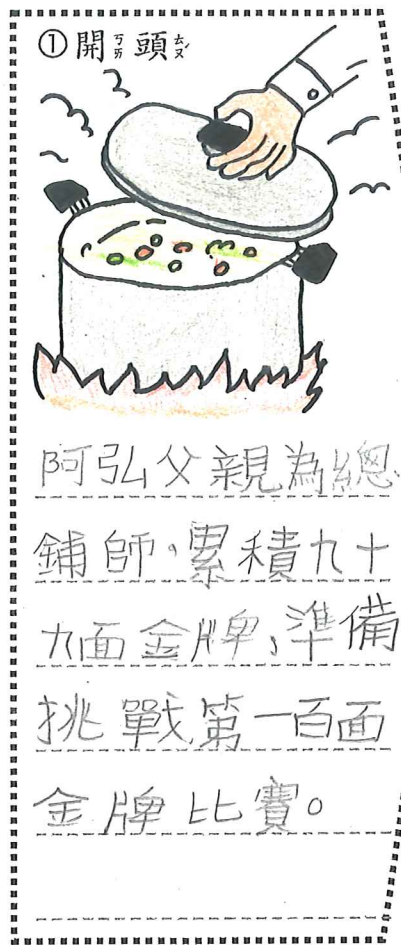 ①開ㄎㄞ頭ㄊㄡˊ
阿弘父親為總
鋪師,累積九十
九面金牌,準備
挑戰第一百面
金牌比賽。